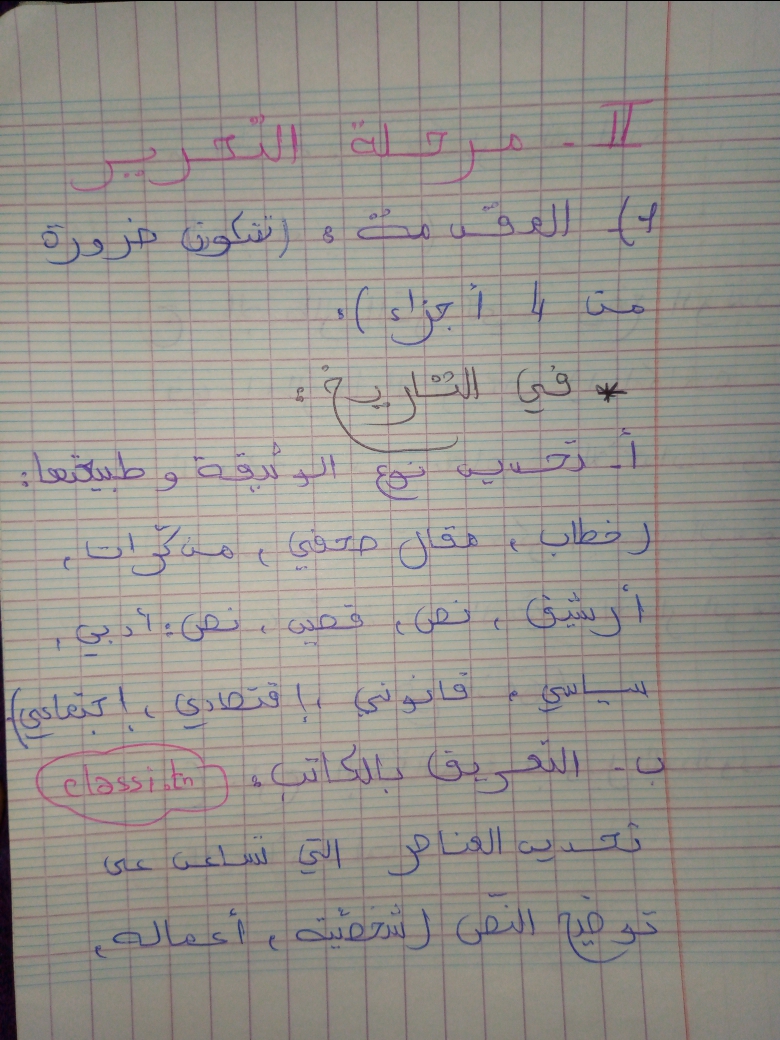 II - مرحلة التحرير
1) المقدمة : (تتكون ضرورة
من 4 أجزاء) :
* في التاريخ :
أ- تحديد نوع الوثيقة و طبيعتها :
(خطاب ، مقال صحفي ، مذكّرات ،
أرشيف ، نص ، قصيد ، نص : أدبي ،
سياسي ، قانوني ، إقتصادي ، إجتماعي)
ب- التعريف بالكاتب : classi.tn
تحديد العناصر التي تساعد على
توضيح النّص (شخصيّته ، أعماله ،